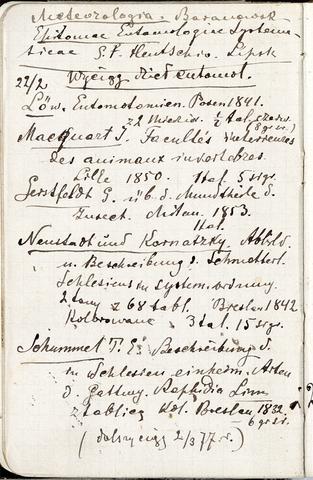 Meteorologia. Baranowsk
Epitomae Entomologiae Systema-
ticae G. F. Hentschio. Lipsk
22/2 Wyciąg dzieł entomol.
Löw. Entomotomien. Posen 1841.
z 2 miedzior. ½ tal.
Macquart J. Facultés interieures
des animaux invertebres.
Lille 1850. 1 tal. 5 sgr.
Gerstfeldt G. üb. d. Mundtheile d.
Insect. Mitau. 1853.
1 tal.
Neustadt und Kornatzky. Abbild.
u. Beschreibung d. Schmetterl.
Schlesiens in system. ordnung.
2 tomy z 68 tabl. Breslau 1842
Kolorowane 3 tal. 15 sgr.
Schummel T. E. Beschreibung d.
in Schlesien einheim. Arten
d. Gattung. Raphidia Linn
z tablicą kol. Breslau 1832
6 gr. sr.
(dalszy ciąg 2/3 77 r.)